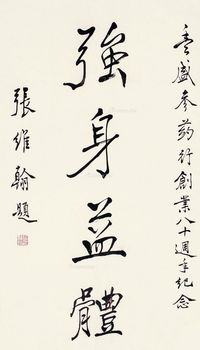 盛參药行創業八十週年紀念
強身益體
張維翰題